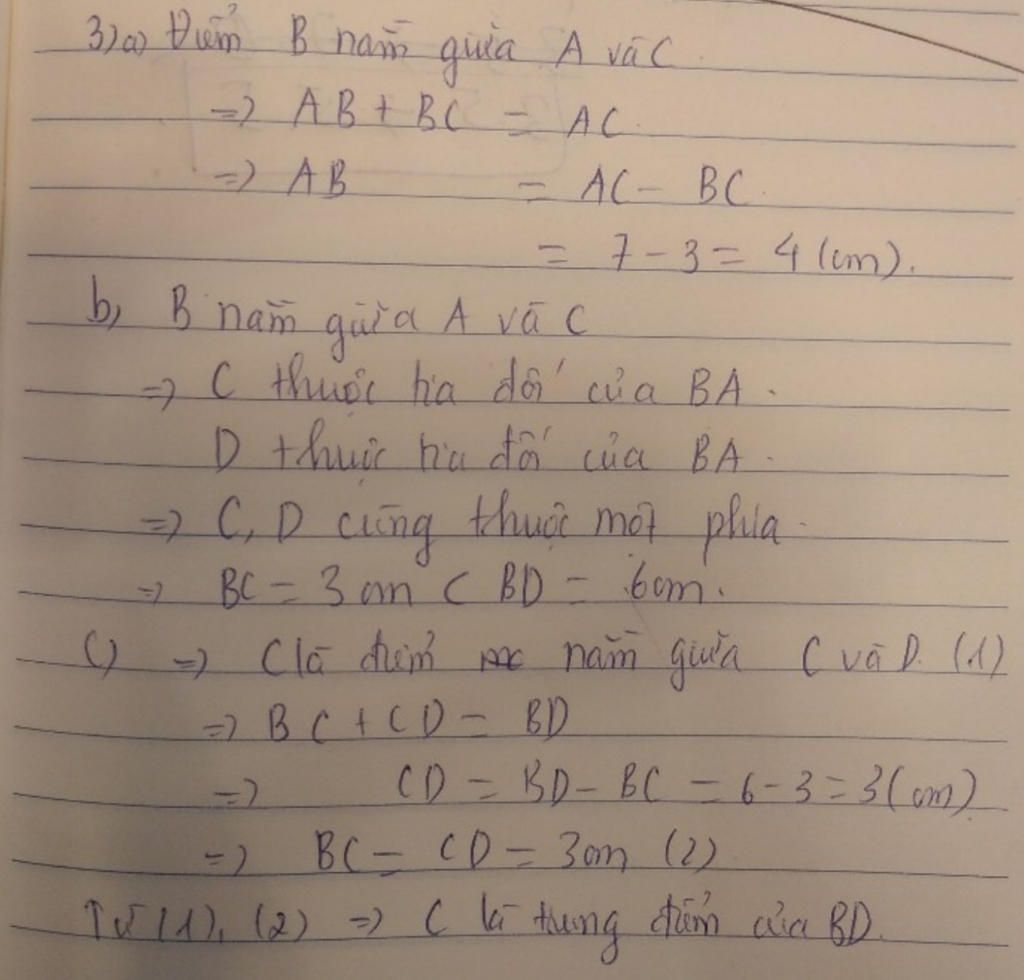 3) a) Điểm B nằm giữa A và C.
=> AB + BC = AC.
=> AB = AC - BC.
= 7 - 3 = 4 (cm).
b) B nằm giữa A và C
=> C thuộc tia đối của BA.
D thuộc tia đối của BA.
=> C, D cùng thuộc một phía.
=> BC = 3 cm < BD = 6cm.
c) => C là điểm nằm giữa C và D. (1)
=> BC + CD = BD
=> CD = BD - BC = 6 - 3 = 3 (cm)
=> BC = CD = 3cm (2)
Từ (1), (2) => C là trung điểm của BD.